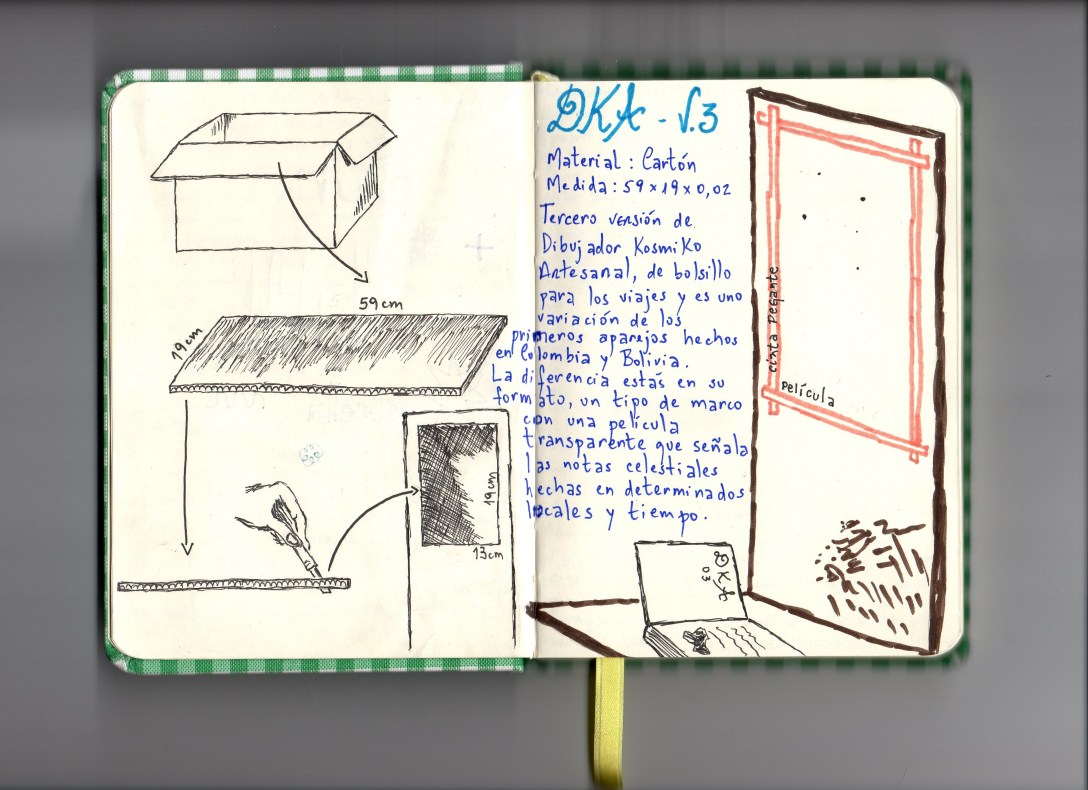 59cm
19cm
19cm
13cm
DKA - V.3
Material : Cartón
Medida : 59 x 19 x 0,02
Tercero versión de
Dibujador KosmiKo
Artesanal, de bolsillo
para los viajes y es uno
variación de los
primeros aparejos hechos
en Colombia y Bolivia.
La diferencia estás en su
formato, un tipo de marco
con una película
transparente que señala
las notas celestiales
hechas en determinados
locales y tiempo.
cinta pegante
película
DKA
03